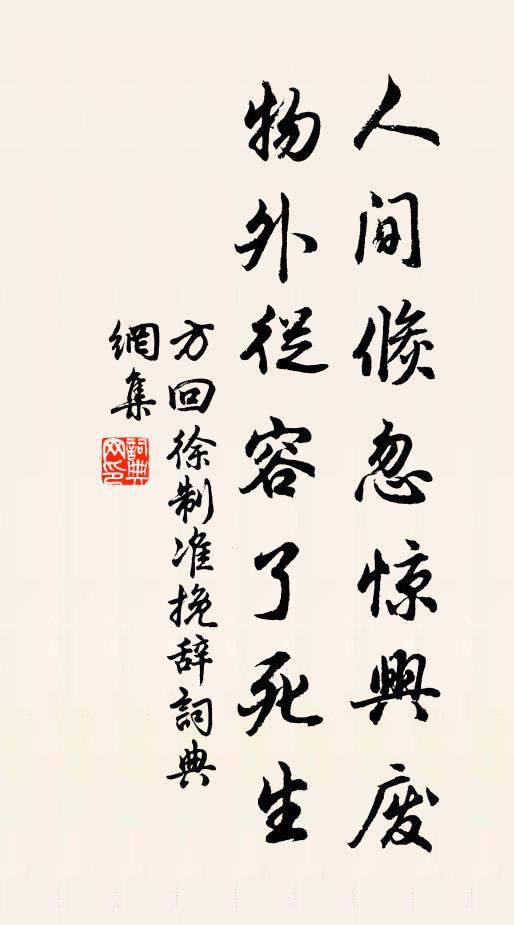 人间倏忽惊興废
物外从容了死生
方回徐制准挽辞詞典
網集
詞典網印